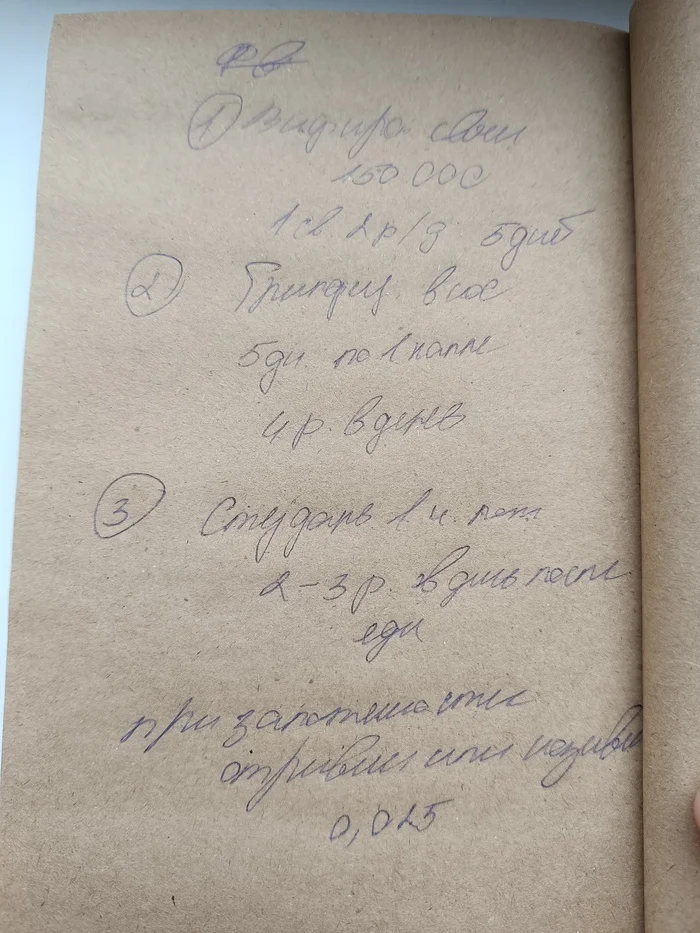 ① Виферон свечи
150 000
1 св 2 р/д 5 дней
② Гриппф в нос
5 дн. по 1 капле
4 р. в день
③ 1 ч. лож
2-3 р. в день после
еды
при заложенности
отривин или називин
0,025